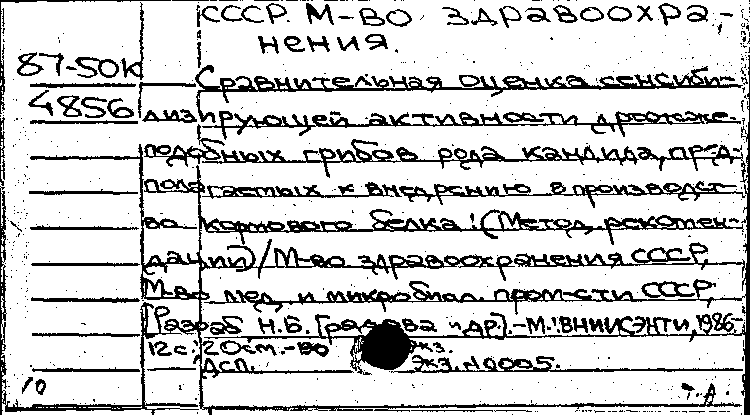 СССР. М-во здравоохра-
нения.
87-50К Сравнительная оценка сенсиби-
4856 лизирующей активности дрожже-
подобных грибов рода кандида, пред-
полагаемых к внедрению в производст-
во кормового белка: (Метод. рекомен-
дации) / М-во здравоохранения СССР,
М-во мед. и микробиол. пром-сти СССР;
[Разраб. Н.Б. и др.]. - М.: ВНИИСЭНТИ, 1986.-
12 с.; 20 см. - экз.
ДСП. Экз. N 0005.
10 Т.А.